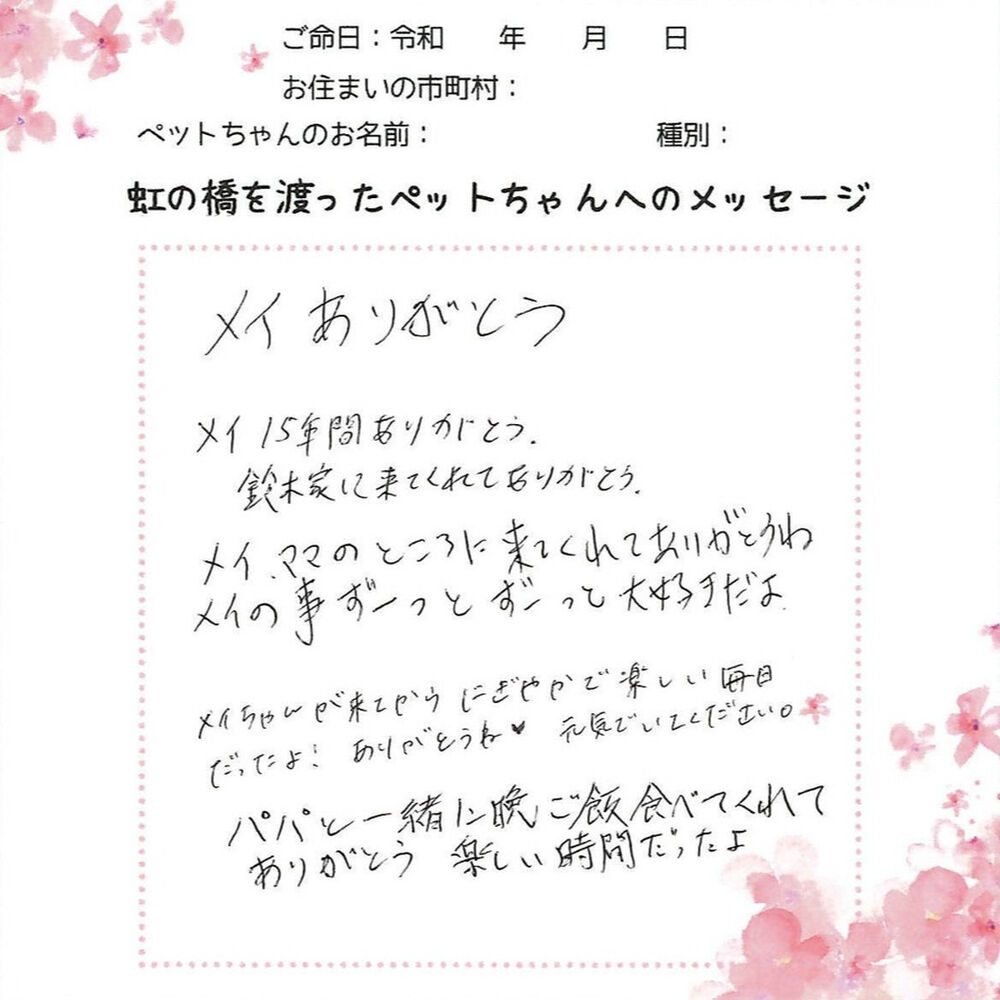 ご命日：令和　　年　　月　　日
お住まいの市町村：
ペットちゃんのお名前：　　　　　　　　種別：
虹の橋を渡ったペットちゃんへのメッセージ
メイ ありがとう
メイ 15年間ありがとう.
鈴木家に来てくれてありがとう.
メイ、ママのところに来てくれてありがとうね
メイの事ずーっとずーっと大好きだよ
メイちゃんが来てから にぎやかで楽しい毎日
だったよ! ありがとうね♥ 元気でいてください。
パパと一緒に晩ご飯食べてくれて
ありがとう 楽しい時間だったよ